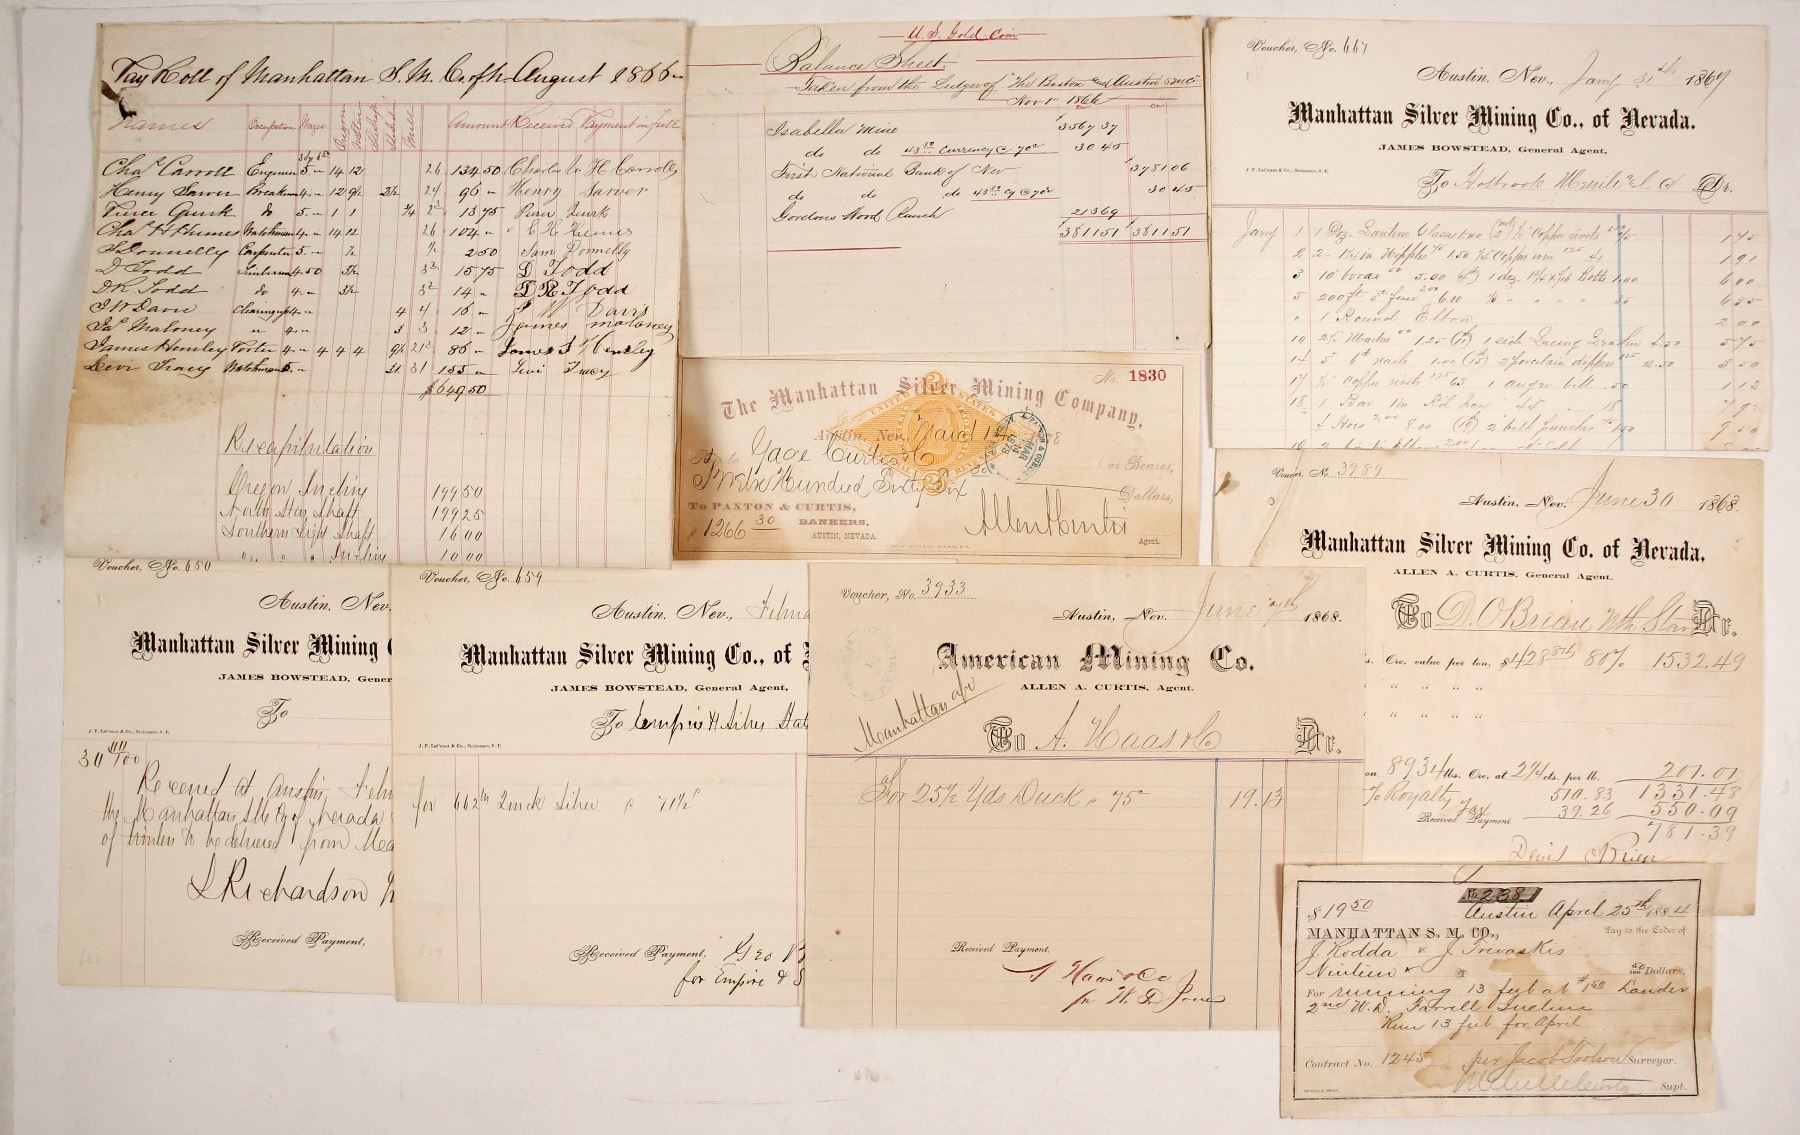 Pay Roll of Manhattan S. M. Co. for August 1866
Names Occupation Wages Amount Received Payment in full
Chas Carroll Engineer 5 14 12 26 134.50 Charles W H Carroll
Henry Sarver Breakman 4 12 9½ 2½ 24 96 Henry Sarver
do 5 1 1 ¾ 13 75
Chas H Humes Watchman 4 14 12 26 104 C H Humes
S Donnelly Carpenter 5 ½ ½ 2 50 Sam Donnelly
D Todd Timberman 4.50 3½ 3½ 15 75 D Todd
D. R. Todd do 4 3½ 3½ 14 D R Todd
J W Davis Clearing up 4 4 4 16 J W Davis
Jas Maloney " 4 3 3 12 James Maloney
James Hemsley Porter 4 4 4 4 9½ 21½ 86
Levi Tracy Watchman 5 31 31 155 Levi Tracy
$649.50
Recapitulation
Oregon Incline 199 50
North Star Shaft 199 25
Southern Light Shaft 16 00
" " Incline 10 00
U. S. Gold Coin
Balance Sheet
Taken from the Ledger of "The Boston and Austin S M Co"
Nov 1st 1866
Isabella Mine 3567 37
do do 43.50 Currency @ 70c 30 45
First National Bank of Nev $3781 06
do do 43.50 Cy @ 70c 30 45
Gordons Wood Ranch 213 69
$3811 51 $3811 51
Voucher, No. 667
Austin, Nev., Jany 31st 1867
Manhattan Silver Mining Co., of Nevada.
JAMES BOWSTEAD, General Agent,
To Holbrook Merrill & Co Dr.
Jany 1 1 Doz. Lantern Glasses Copper rivets 1 75
2 1 91
3 10 borax 5.00 1 doz. Bolts 1.00 6 00
5 200 ft fuse 6.00 6 35
" 1 Round Elbow 2 00
10 5 75
14 5 6d nails 1.00 2 Porcelain dippers 2.50 3 50
17 Copper rivets 63 1 augre bitt .50 1 13
18 1 Bar Rd Iron
4 Hoes 8.00 2 belt punches 1.00 9 00
The Manhattan Silver Mining Company,
No. 1830
Austin, Nev. March 14 1878
Pay to Gage Curtis & Co or Bearer,
Twelve Hundred Sixty Six Dollars,
To PAXTON & CURTIS,
BANKERS,
AUSTIN, NEVADA.
$1266 30 Allen A Curtis
Agent.
Voucher, No. 3989
Austin, Nev. June 30 1868.
Manhattan Silver Mining Co. of Nevada,
ALLEN A. CURTIS, General Agent.
To D. O'Brien Nth Star Dr.
Ore, value per ton, $428 80% 1532.49
" " " "
" " " "
on 8934 lbs. Ore, at 2¼ cts. per lb. 201.01
1331.48
Royalty 510.83
Tax 39.26 550.09
Received Payment 781.39
Denis O'Brien
Voucher, No. 650
Austin, Nev.
Manhattan Silver Mining
JAMES BOWSTEAD, Gener
To
J. P. LeCount & Co., Stationers, S. F.
Received at Austin
the Manhattan S M Co of Nevada
of timbers to be delivered from
L Richardson
Received Payment,
Voucher, No. 659
Austin, Nev.,
Manhattan Silver Mining Co., of
JAMES BOWSTEAD, General Agent,
To Empire
J. P. LeCount & Co., Stationers, S. F.
for 662 lbs Quick Silver @ 71½c
Received Payment, Geo
for Empire & S
Voucher, No. 3933
Austin, Nev. June 7th 1868.
American Mining Co.
ALLEN A. CURTIS, Agent.
Manhattan a/c
To A. Haas & Co Dr.
For 25½ Yds Duck @ 75c 19.13
Received Payment,
A Haas & Co
pr H D Jones
No. 238
$19 50 Austin April 25th 1884
MANHATTAN S. M. CO., Pay to the Order of
J. Rodda & J. Trevaskis
Nineteen & 50/100 Dollars,
For running 13 feet at $1.50 Lander
2nd W. D. Farrell Incline
Run 13 feet for April
Contract No. 1245 per Jacob Surveyor.
Supt.